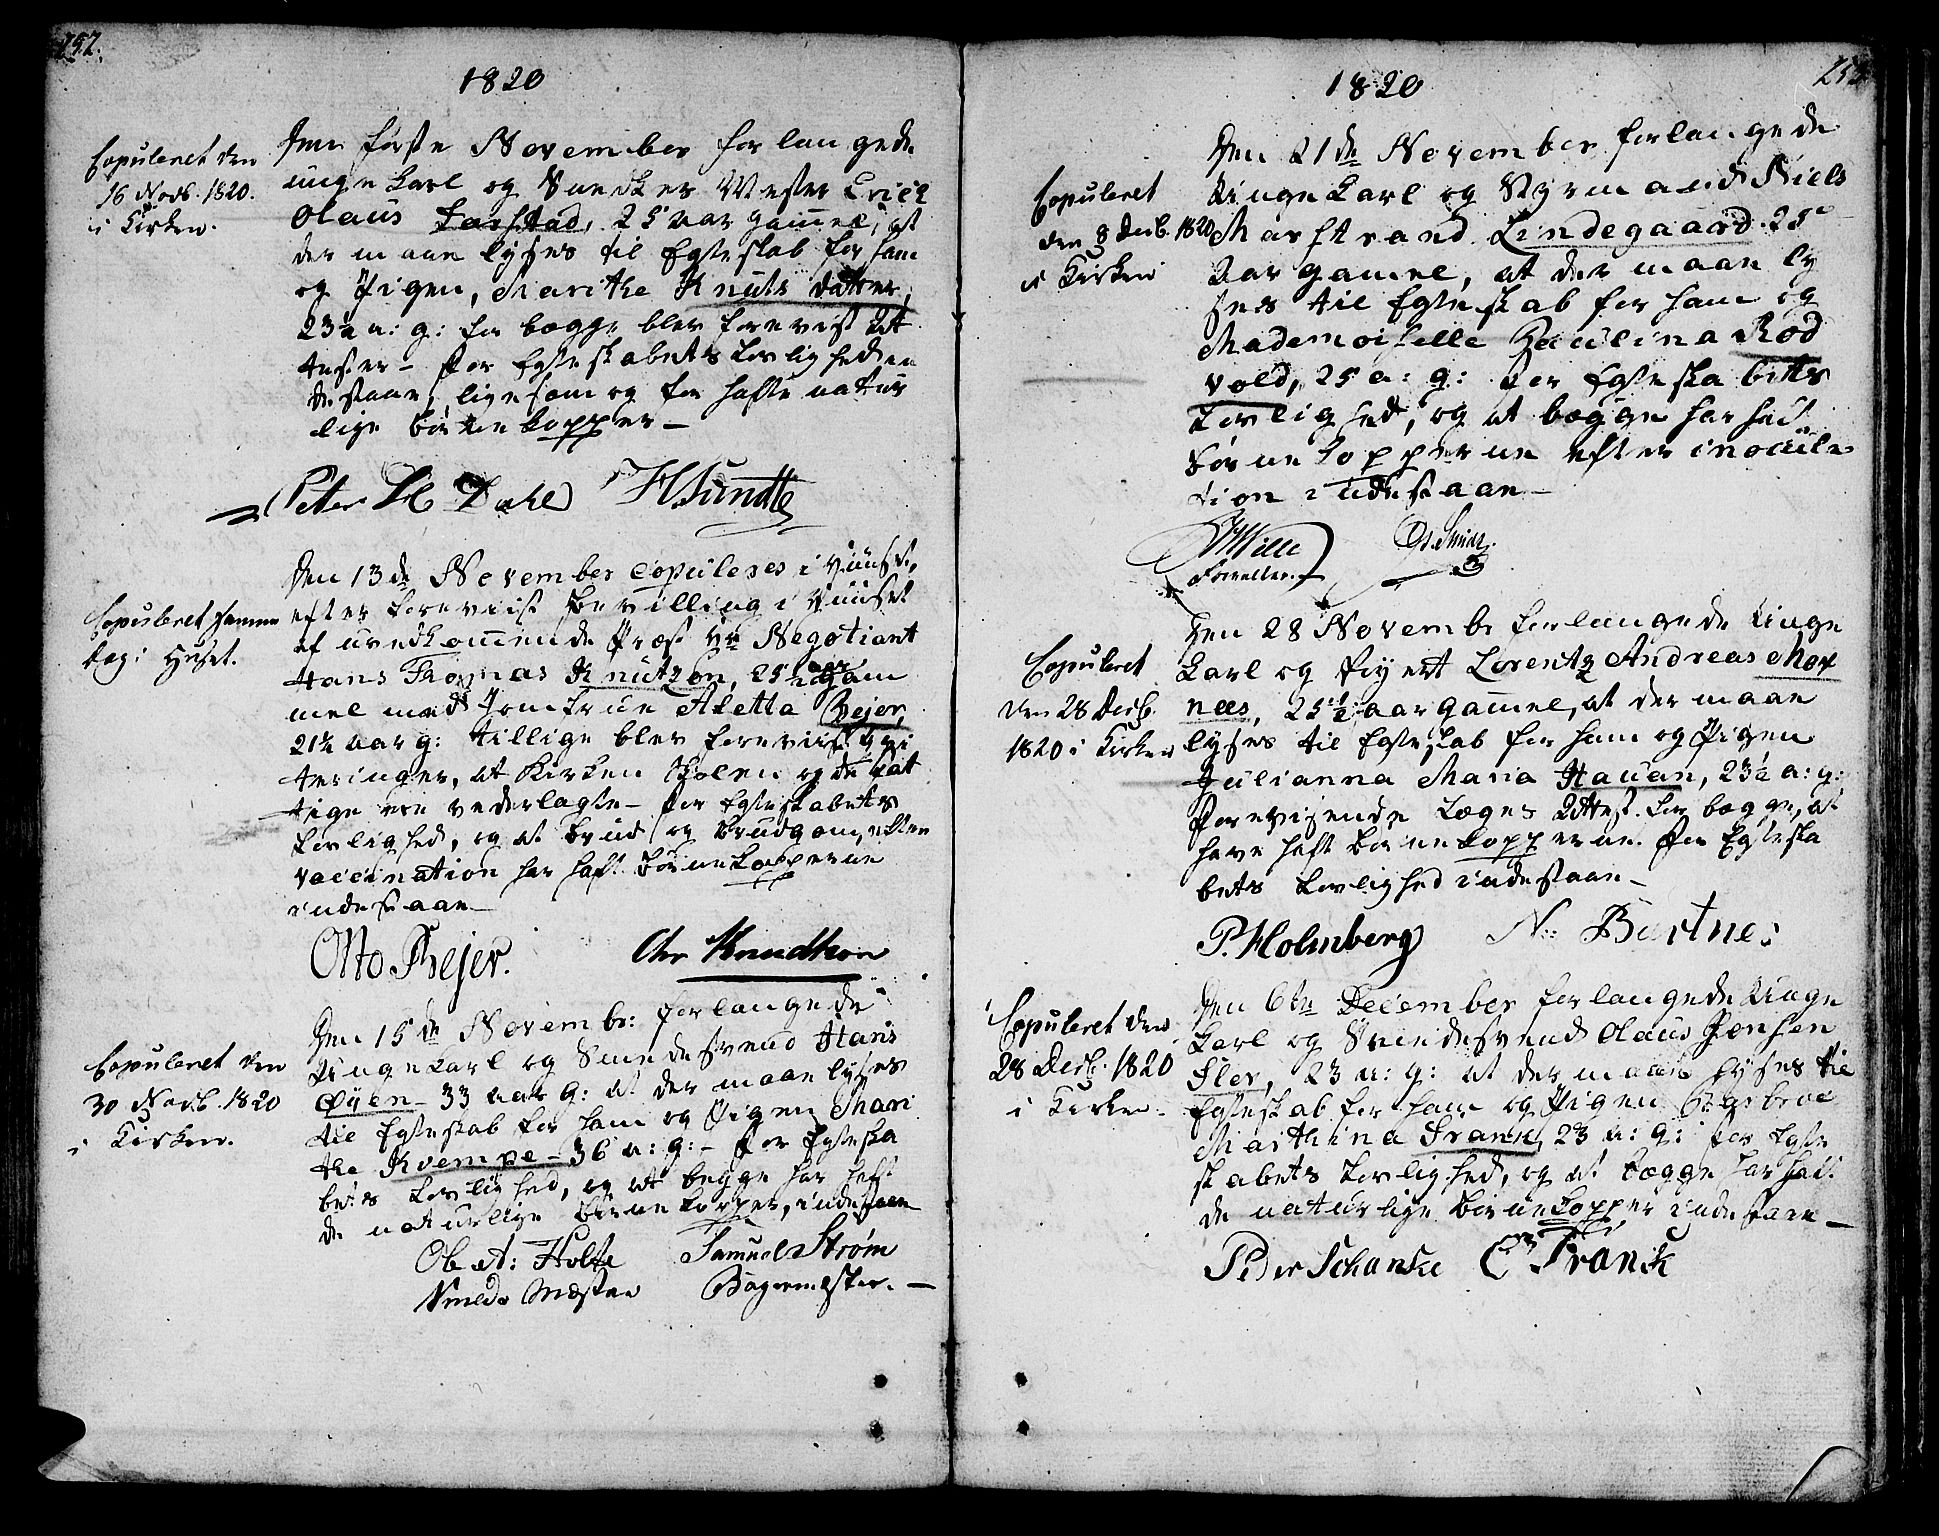 252.
1820
Copuleret den
16 Novb. 1820.
i Kirken.
Den første November forlangede
unge Karl og Snedker Mester Erich
Olaus Farstad, 25 aar gammel, at
der maae lyses til Egteskab for ham
og Pigen, Marithe Knuts datter,
23½ a: g: for begge blev foreviist Att
tester - For Egteskabets Lovlighed in
destaae, ligesom og for hafte natur
lige Børnekopper -
Peter Dahl H Sundt
Copuleret samme
dag i Huset.
Den 13de November copuleres i Huuset,
efter foreviist Bevilling i Huuset
af uvedkommende Præst Hr Negotiant
Hans Thomas Knutzon, 25½ aar gam
mel med Jomfrue Aletta Bejer,
21½ aar g: tillige blev foreviist Qvi
teringer, at Kirken Skolen og de fat
tige ere vederlagte - For Egteskabets
Lovlighed, og at Brud og Brudgom, efter
vaccination har haft Børnekopperne
indestaae -
Otto Bejer. Chr Knudtzon
Copuleret den
30 Novb. 1820
i Kirken.
Den 15de Novembr: forlangede
Ungekarl og Smedesvend Hans
Øyen - 33 aar g: at der maae lyses
til Egteskab for ham og Pigen Mari
the Kvempe - 36 a: g: - For Egteska
bets Lovlighed, og at begge har haft
de naturlige Børnekopper, indestaae
Ole A: Holte Samuel Strøm
Smede Mæster Bagermester. -
1820
Copuleret
den 8 Decb. 1820
i Kirken
Den 21de November forlangede
Ungekarl og Styrmand Niels
Marstrand Lindegaard 25
Aar gamel, at der maae ly
ses til Egteskab for ham og
Mademoiselle Paulina Rød
vold, 25 a: g: For Egteskabets
Lovlighed, og at begge har haft
Børnekopperne efter inocula
tion indestaae -
Copuleret
den 28 Decb.
1820 i Kirken
Den 28 Novembr forlangede Unge
Karl og Lorentz Andreas Mox
nees, 25½ aar gamel, at der maae
lyses til Egteskab for ham og Pigen
Julianna Maria Hauan, 23½ a: g:
Forevisende Læges Attest for begge, at
have haft Børnekopperne. For Egteska
bets Lovlighed indestaae -
P. Holmberg N: Bartnes
Copuleret den
28 Decb. 1820
i Kirken.
Den 6te December forlangede Unge
Karl og Smedesvend Olaus Jensen
Slev, 23 a: g: at der maae lyses til
Egteskab for ham og Pigen
Marthina Frank, 23 a: g: For Egte
skabets Lovlighed, og at begge har haft
de naturlige Børnekopper indestaae -
Peder Schanke C Frank